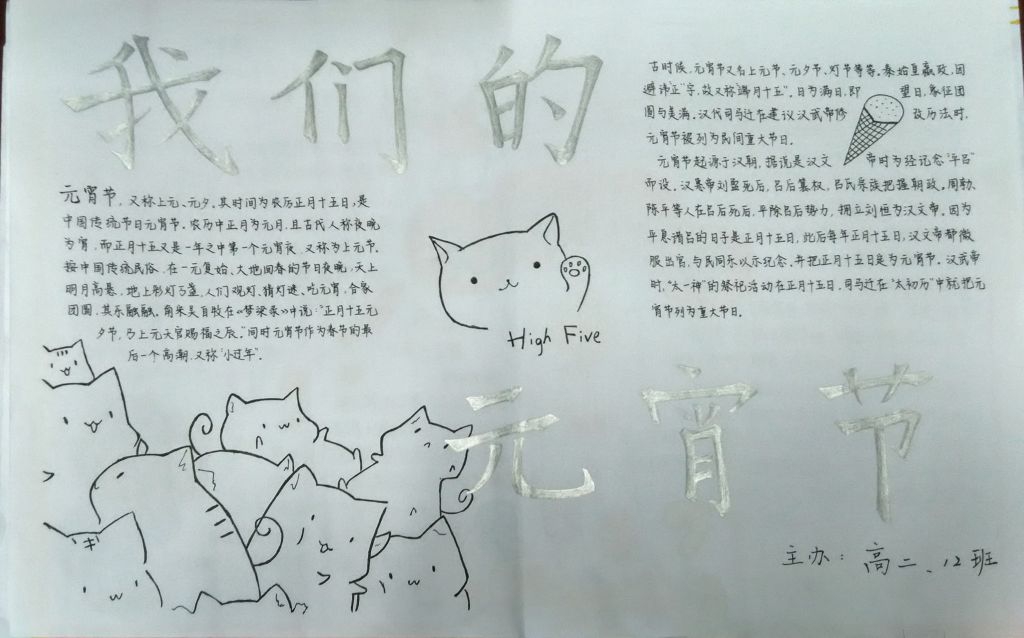 我们的
元宵节，又称上元、元夕。其时间为农历正月十五日，是
中国传统节日元宵节。农历中正月为元月，且古代人称夜晚
为宵，而正月十五又是一年之中第一个元宵夜，又称为上元节。
按中国传统民俗，在一元复始、大地回春的节日夜晚，天上
明月高悬，地上彩灯万盏，人们观灯、猜灯谜、吃元宵，合家
团圆，其乐融融。南宋吴自牧在《梦梁录》中说："正月十五元
夕节，乃上元天官赐福之辰。"同时元宵节作为春节的最
后一个高潮，又称"小过年"。
High Five
古时候，元宵节又名上元节、元夕节、灯节等等。秦始皇嬴政，因
避讳正"字，故又称"端月十五"。日为满日，即 望日，象征团
圆与美满。汉代司马迁在建议汉武帝修 改历法时，
元宵节被列为民间重大节日。
元宵节起源于汉朝，据说是汉文 帝时为经记念"平吕"
而设。汉惠帝刘盈死后，吕后篡权，吕氏宗族把握朝政。周勃、
陈平等人在吕后死后，平除吕后势力，拥立刘恒为汉文帝。因为
平息诸吕的日子是正月十五日，此后每年正月十五日，汉文帝都微
服出宫，与民同乐以示纪念。并把正月十五日定为元宵节。汉武帝
时，"太一神"的祭祀活动在正月十五日，司马迁在"太初历"中就把元
宵节列为重大节日。
元宵节
主办：高二、12班